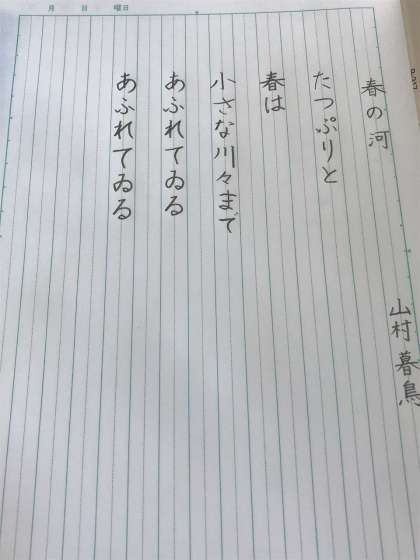 月 日 曜日
春の河
山村暮鳥
たっぷりと
春は
小さな川々まで
あふれてゐる
あふれてゐる